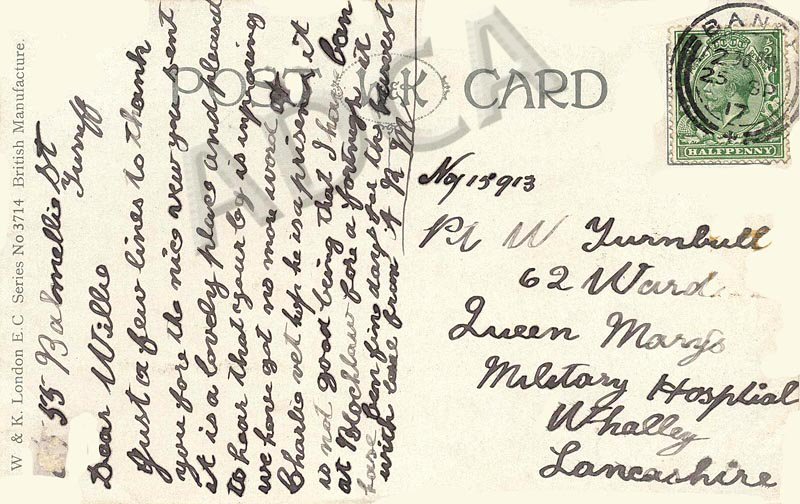 W & K. London E.C Series No 3714 British Manufacture.
POST W&K CARD
ADCA
BANFF
25 SP
17
HALFPENNY
55 Balmellie St
Turreff
Dear Willie
Just a few lines to thank
you fore the nice vew you sent
it is a lovely place and pleased
to hear that your by is improving
we have got no more word of
Charlie yet hop he is a prisen it
is not good being that I have ban
at Blochbaw fore a fortnigh it
has ben fine day for the harvest
with love from A R M
No 15913
Pt W Turnbull
62 Ward
Queen Marys
Military Hosptial
Whalley
Lancashire